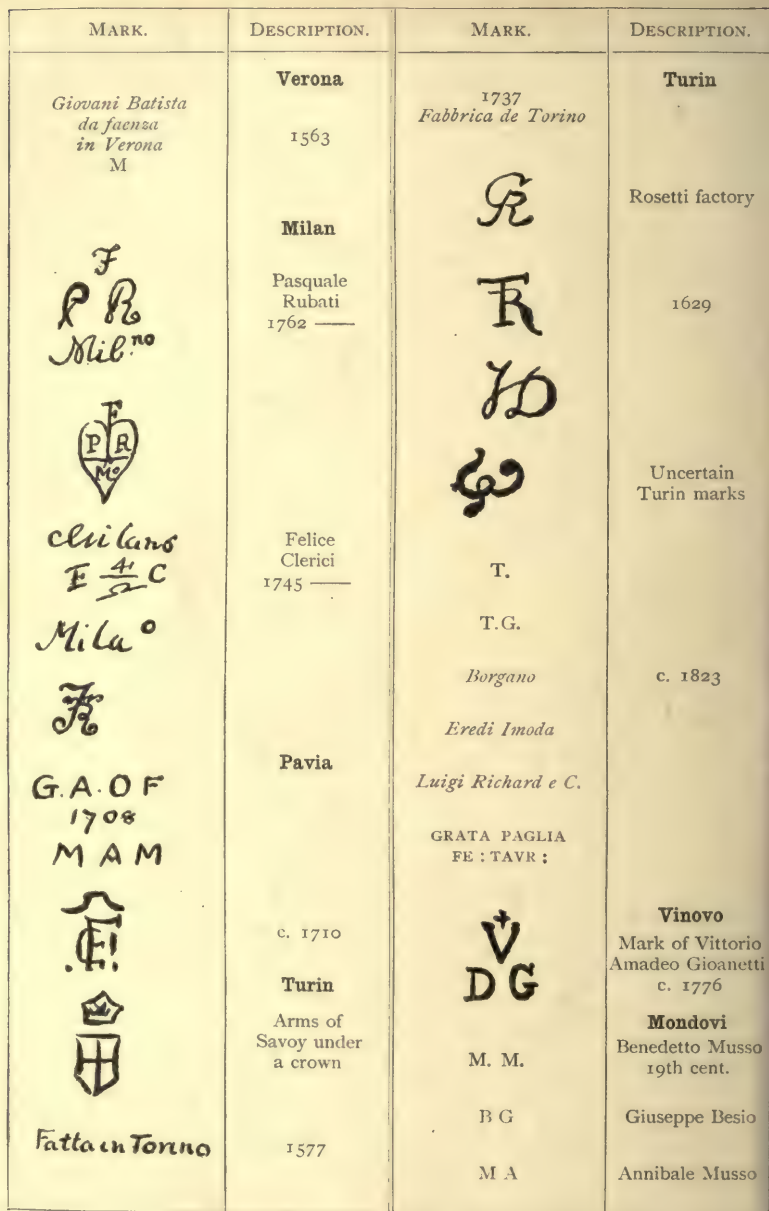 MARK.
DESCRIPTION.
Verona
Giovani Batista
da faenza
in Verona
M
1563
Milan
F
P R
Mil.no
Pasquale
Rubati
1762 ——
F
P R
Mo
Milano
F C
Felice
Clerici
1745 ——
Mila o
Pavia
G.A.O F
1708
M A M
c. 1710
Turin
Arms of
Savoy under
a crown
Fatta in Torino
1577
MARK.
DESCRIPTION.
Turin
1737
Fabbrica de Torino
Rosetti factory
1629
Uncertain
Turin marks
T.
T.G.
Borgano
c. 1823
Eredi Imoda
Luigi Richard e C.
GRATA PAGLIA
FE : TAVR :
Vinovo
V
D G
Mark of Vittorio
Amadeo Gioanetti
c. 1776
Mondovi
M. M.
Benedetto Musso
19th cent.
B G
Giuseppe Besio
M A
Annibale Musso